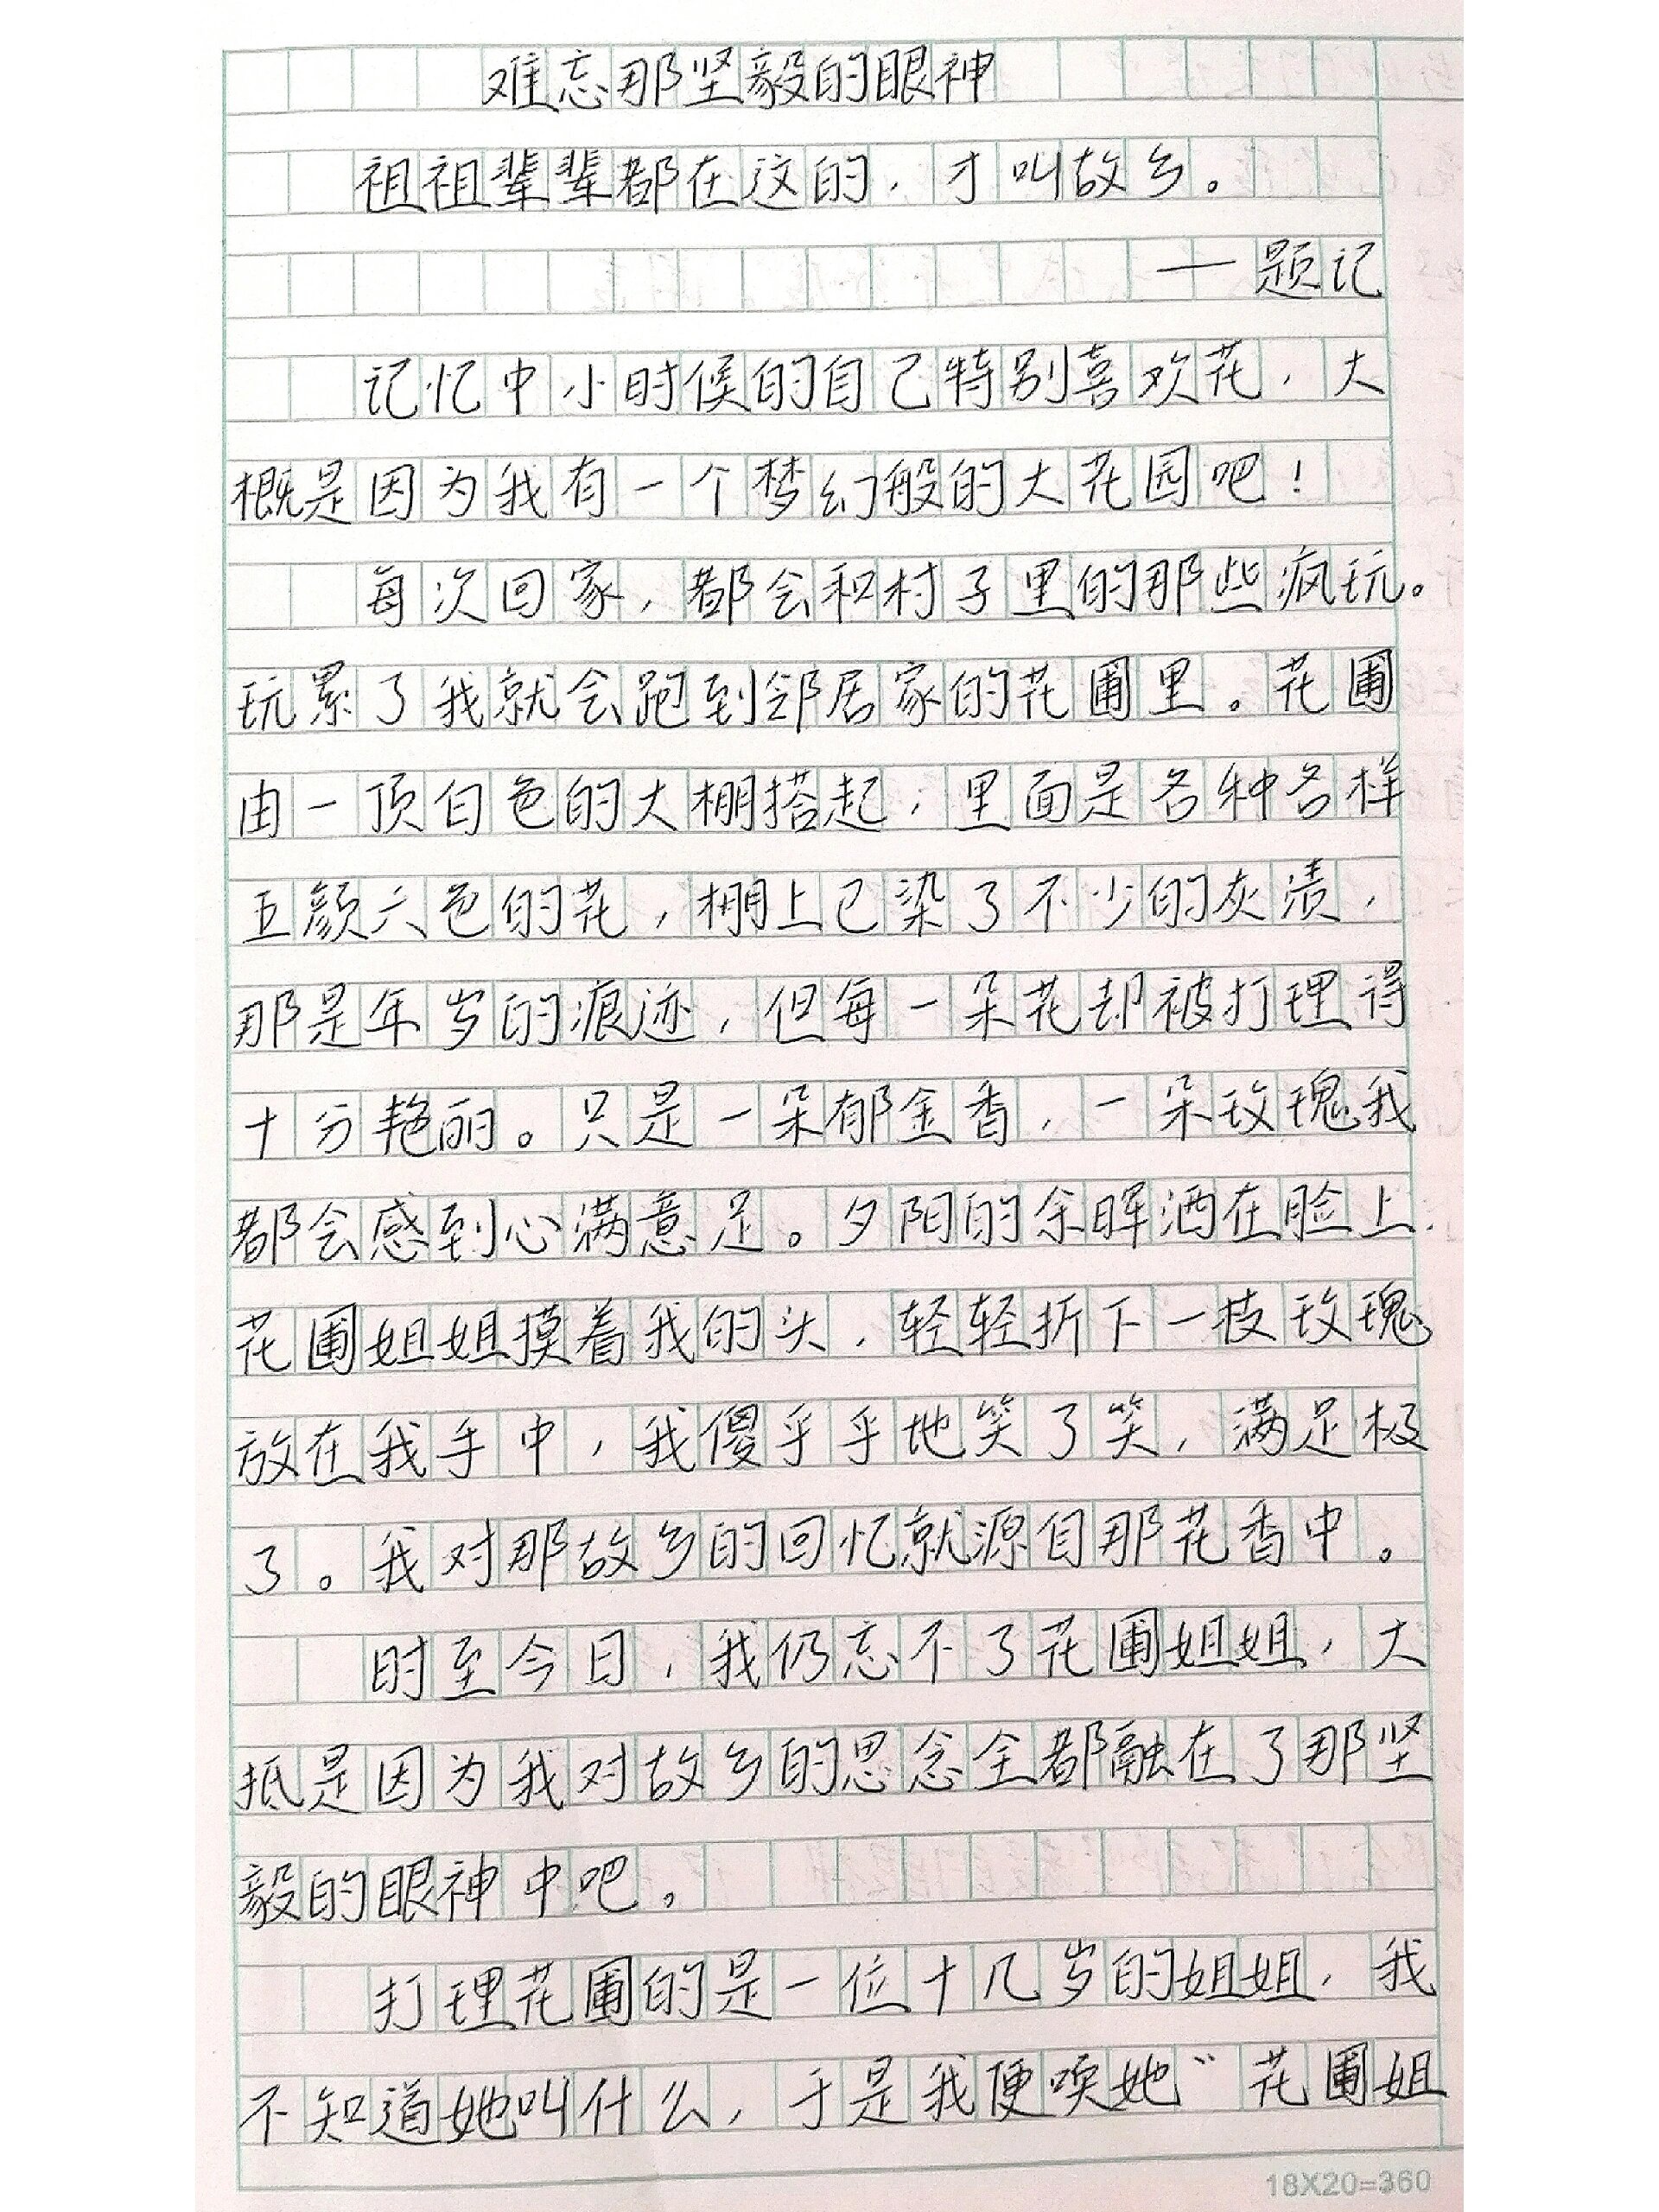 难忘那坚毅的眼神
祖祖辈辈都在这的，才叫故乡。
——题记
记忆中小时候的自己特别喜欢花，大
概是因为我有一个梦幻般的大花园吧！
每次回家，都会和村子里的那些疯玩。
玩累了我就会跑到邻居家的花圃里。花圃
由一顶白色的大棚搭起，里面是各种各样
五颜六色的花，棚上已染了不少的灰渍，
那是年岁的痕迹，但每一朵花却被打理得
十分艳丽。只是一朵郁金香，一朵玫瑰我
都会感到心满意足。夕阳的余晖洒在脸上，
花圃姐姐摸着我的头，轻轻折下一枝玫瑰
放在我手中，我傻乎乎地笑了笑，满足极
了。我对那故乡的回忆就源自那花香中。
时至今日，我仍忘不了花圃姐姐，大
抵是因为我对故乡的思念全都融在了那坚
毅的眼神中吧。
打理花圃的是一位十几岁的姐姐，我
不知道她叫什么，于是我便唤她“花圃姐
18X20=360